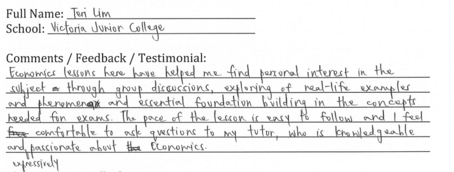 Full Name: Teri Lim
School: Victoria Junior College
Comments / Feedback / Testimonial:
Economics lessons here have helped me find personal interest in the
subject through group discussions, exploring of real-life examples
and phenomena and essential foundation building in the concepts
needed for exams. The pace of the lesson is easy to follow and I feel
comfortable to ask questions to my tutor, who is knowledgeable
and passionate about Economics.
expressively